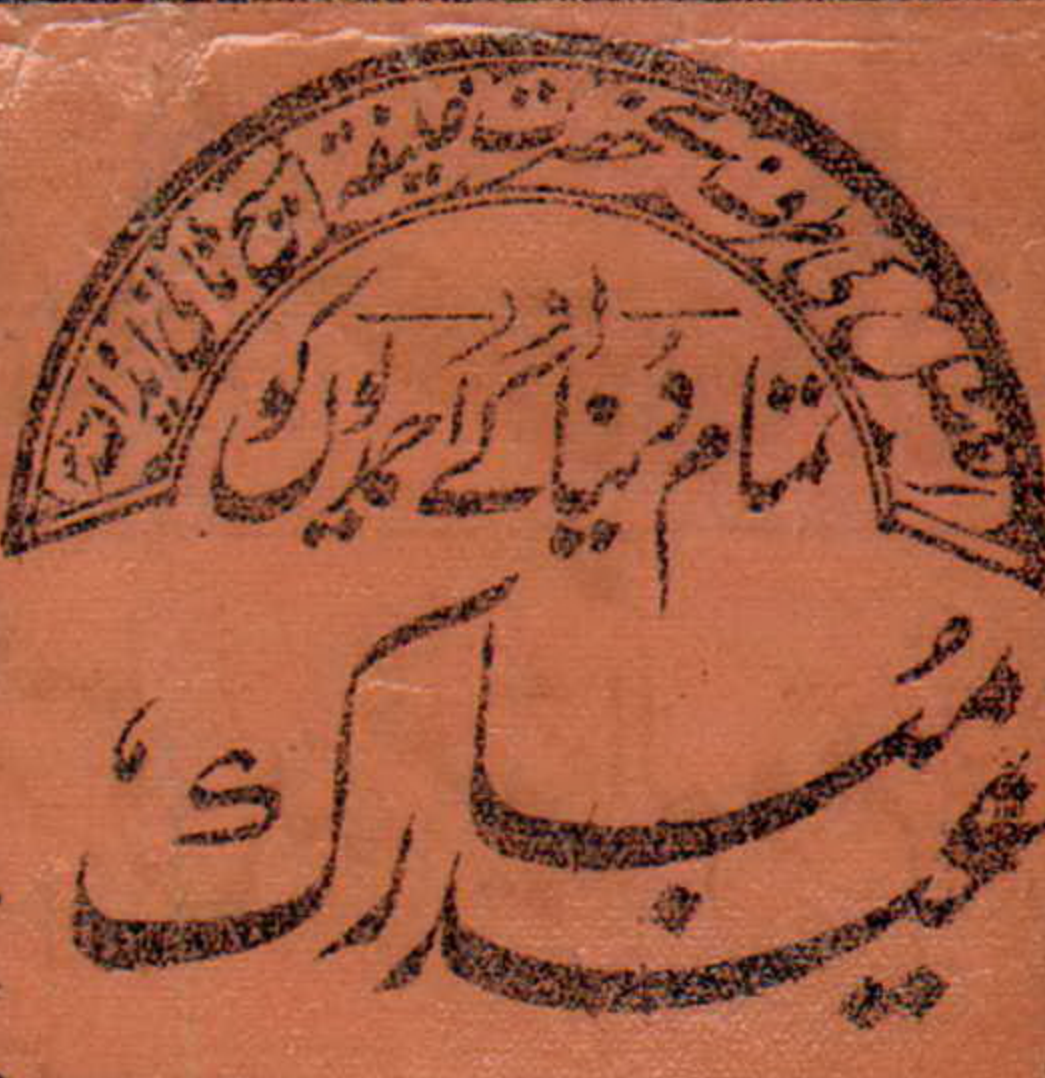 کی طرف سے حضرت خلیفۃ المسیح الثانی ایدہ اللہ
اور
تمام دُنیا کے احمدیوں کو
عید مُبارک